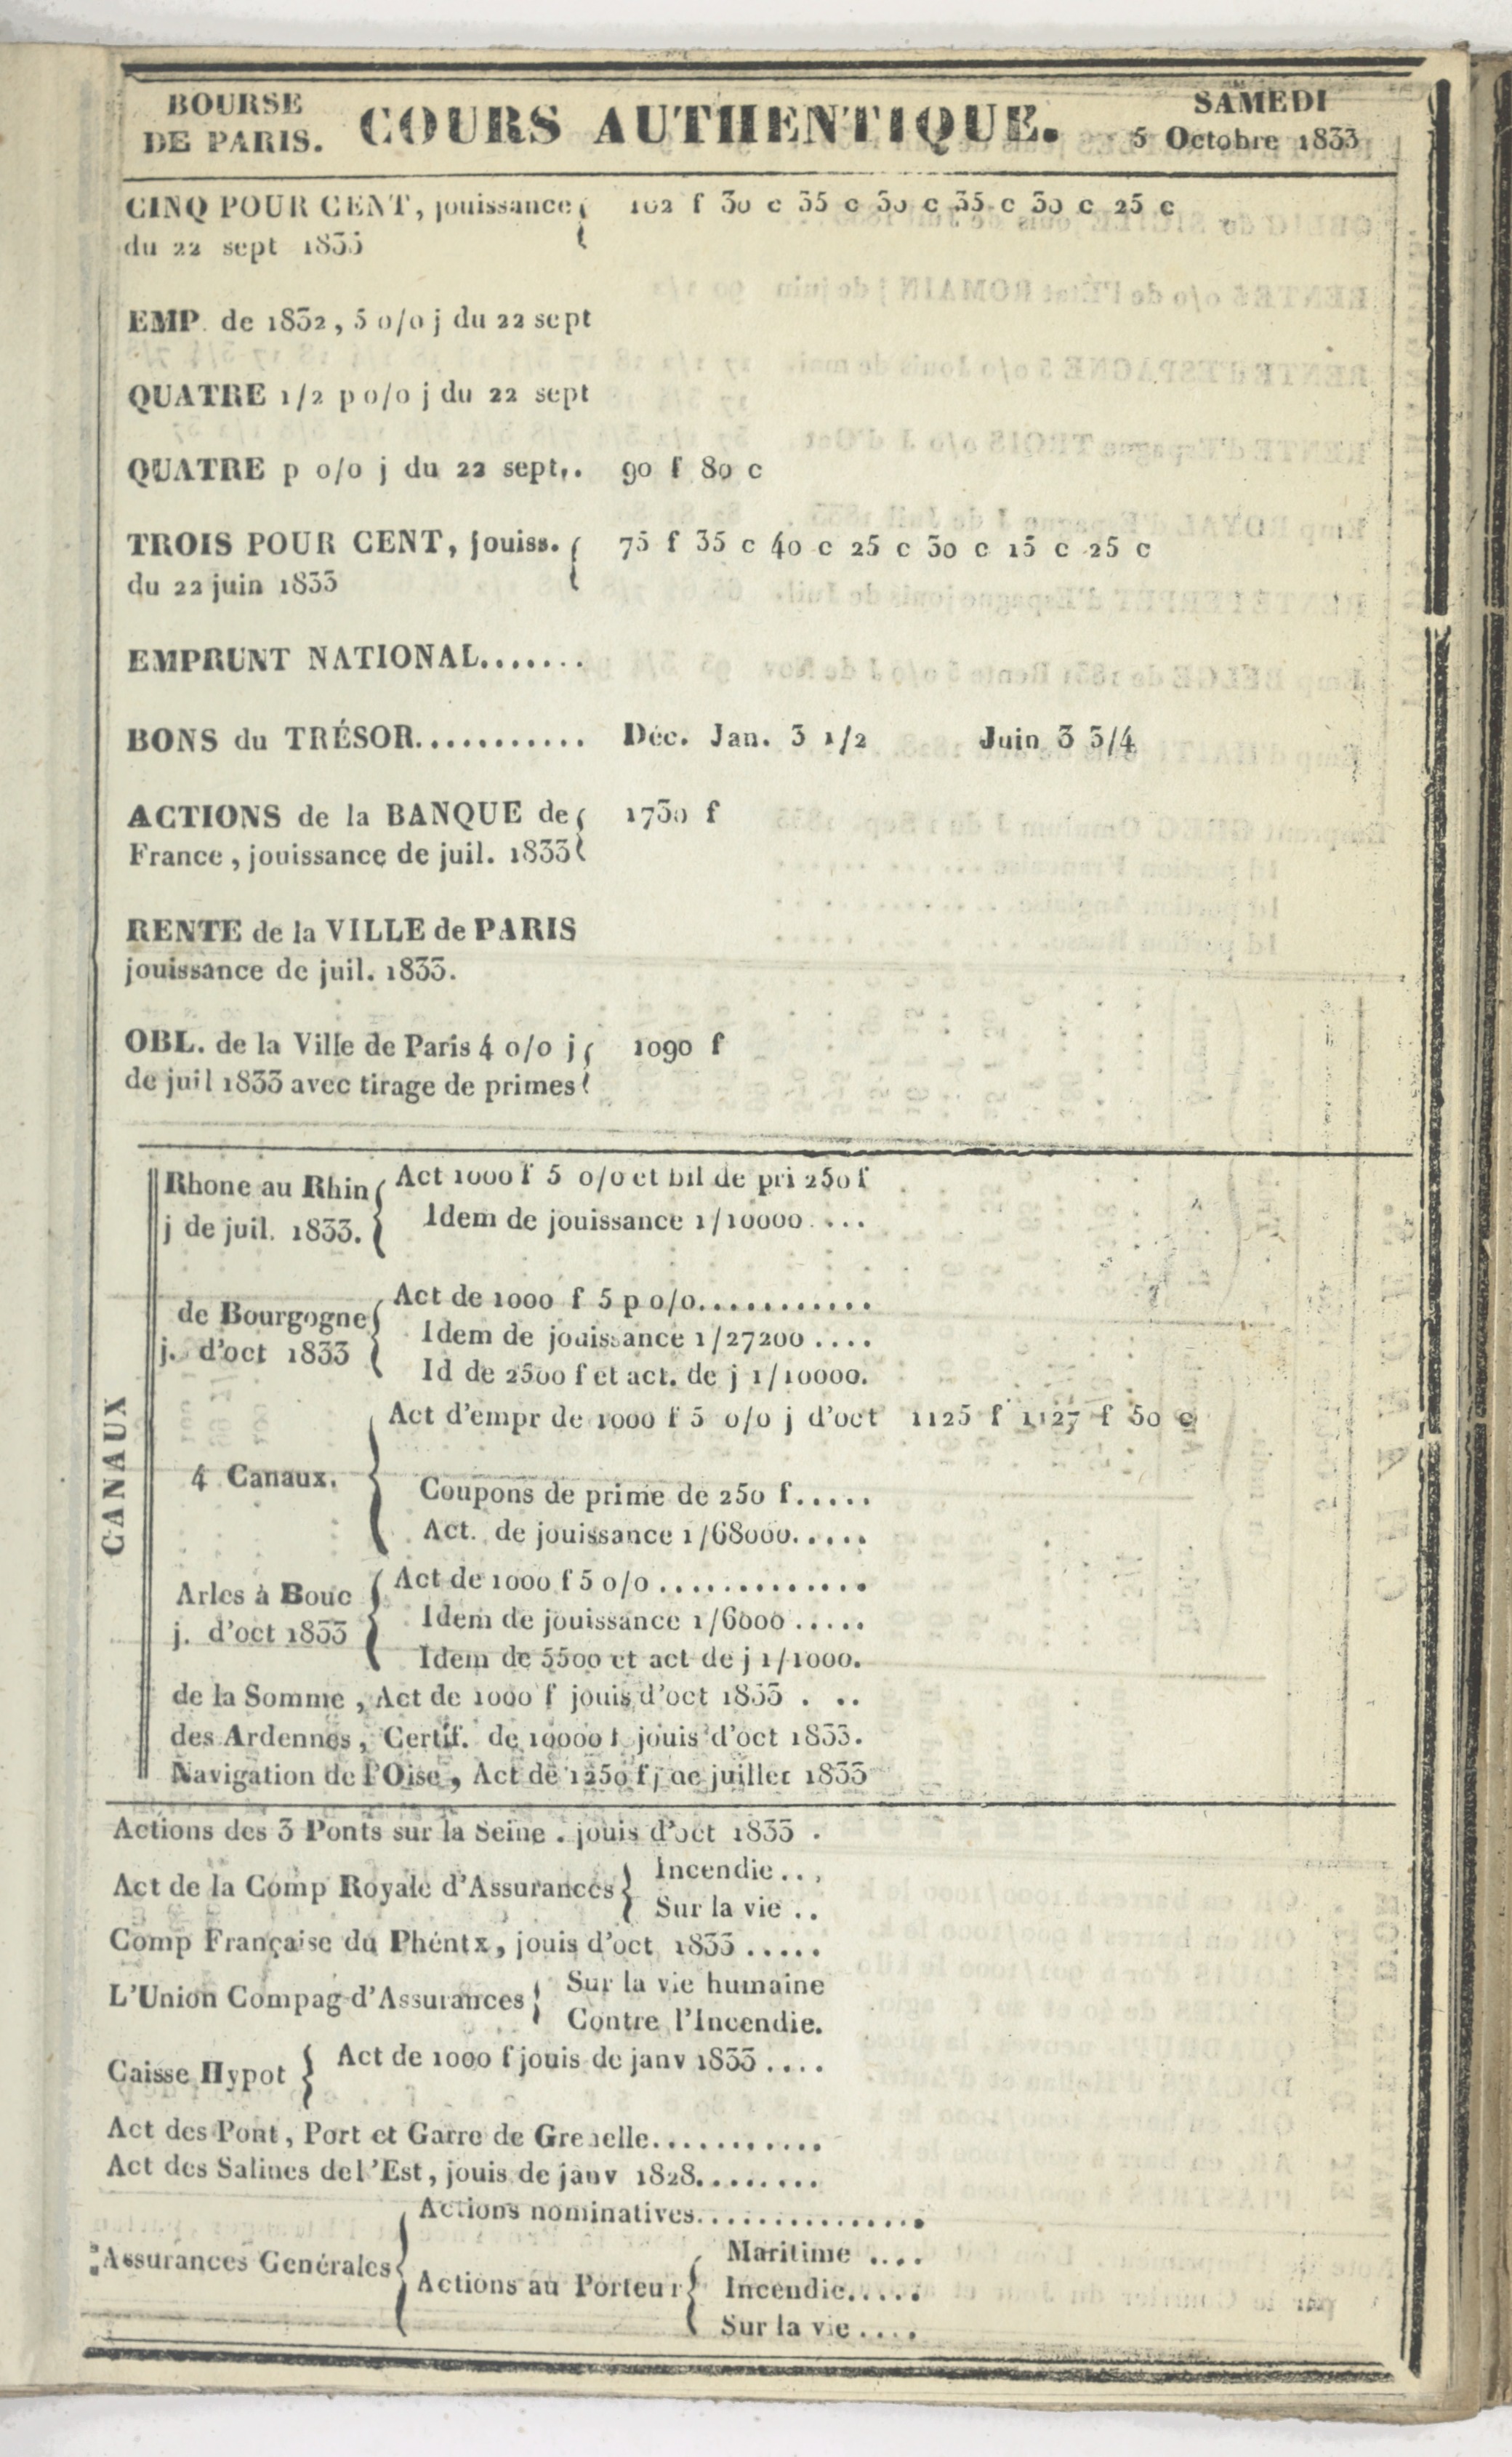 BOURSE
DE PARIS.
COURS AUTHENTIQUE.
SAMEDI
5 Octobre 1833
CINQ POUR CENT, jouissance 102 f 30 c 35 c 30 c 35 c 30 c 25 c
du 22 sept 1833
EMP. de 1832, 5 o/o j du 22 sept
QUATRE 1/2 p o/o j du 22 sept
QUATRE p o/o j du 22 sept.. 90 f 80 c
TROIS POUR CENT, jouiss. 75 f 35 c 40 c 25 c 30 c 15 c 25 c
du 22 juin 1833
EMPRUNT NATIONAL.......
BONS du TRÉSOR........... Déc. Jan. 3 1/2 Juin 3 3/4
ACTIONS de la BANQUE de 1730 f
France, jouissance de juil. 1833
RENTE de la VILLE de PARIS
jouissance de juil. 1833.
OBL. de la Ville de Paris 4 o/o j 1090 f
de juil 1833 avec tirage de primes
CANAUX
Rhone au Rhin
j de juil. 1833.
Act 1000 f 5 o/o et bil de pri 250 f
Idem de jouissance 1/10000....
de Bourgogne
j. d'oct 1833
Act de 1000 f 5 p o/o...........
Idem de jouissance 1/27200....
Id de 2500 f et act. de j 1/10000.
4 Canaux.
Act d'empr de 1000 f 5 o/o j d'oct 1125 f 1127 f 50 c
Coupons de prime de 250 f.....
Act. de jouissance 1/68000.....
Arles à Bouc
j. d'oct 1833
Act de 1000 f 5 o/o.............
Idem de jouissance 1/6000.....
Idem de 5500 et act de j 1/1000.
de la Somme, Act de 1000 f jouis d'oct 1833 . ..
des Ardennes, Certif. de 10000 f jouis d'oct 1833.
Navigation de l'Oise, Act de 1250 f j de juillet 1833
Actions des 3 Ponts sur la Seine . jouis d'oct 1833 .
Act de la Comp Royale d'Assurances
Incendie...
Sur la vie..
Comp Française du Phéntx, jouis d'oct 1833.....
L'Union Compag d'Assurances
Sur la vie humaine
Contre l'Incendie.
Caisse Hypot Act de 1000 f jouis de janv 1833....
Act des Pont, Port et Garre de Grenelle...........
Act des Salines de l'Est, jouis de janv 1828........
Assurances Genérales
Actions nominatives...............
Actions au Porteur
Maritime....
Incendie.....
Sur la vie....